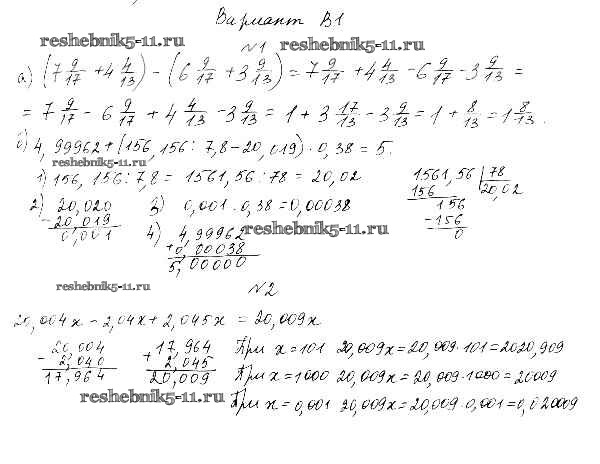 Вариант В1
reshebnik5-11.ru
№1 reshebnik5-11.ru
а) (7 9/17 + 4 4/13) - (6 9/17 + 3 9/13) = 7 9/17 + 4 4/13 - 6 9/17 - 3 9/13 =
= 7 9/17 - 6 9/17 + 4 4/13 - 3 9/13 = 1 + 3 17/13 - 3 9/13 = 1 + 8/13 = 1 8/13.
б) 4,99962 + (156,156 : 7,8 - 20,019) · 0,38 = 5.
reshebnik5-11.ru
1) 156,156 : 7,8 = 1561,56 : 78 = 20,02
1561,56 | 78
156 20,02
156
-156
0
2) 20,020
- 20,019
0,001
3) 0,001 · 0,38 = 0,00038
4) 4,99962
+ 0,00038
5,00000
reshebnik5-11.ru
reshebnik5-11.ru
№2
20,004x - 2,04x + 2,045x = 20,009x
- 20,004
2,040
17,964
+ 17,964
2,045
20,009
При x = 101 20,009x = 20,009 · 101 = 2020,909
При x = 1000 20,009x = 20,009 · 1000 = 20009
При x = 0,001 20,009x = 20,009 · 0,001 = 0,020009
reshebnik5-11.ru